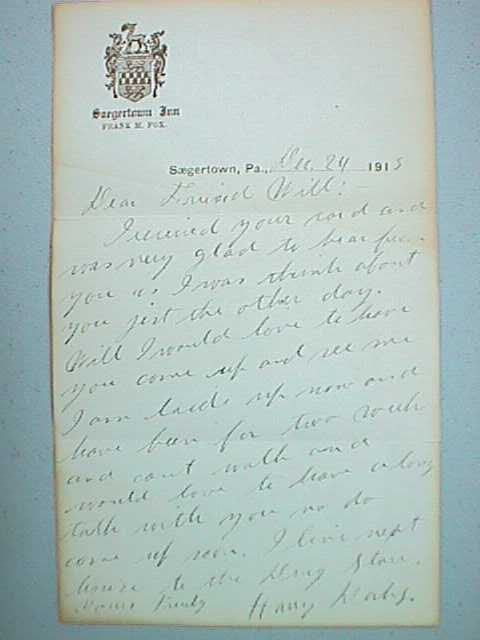 Saegertown Inn
FRANK M. FOX.
Sægertown, Pa., Dec. 24 1915
Dear Friend Will:-
I received your card and
was very glad to hear from
you as I was think about
you jist the other day.
Will I would love to have
you come up and see me
I am laide up now and
have been for two week
and cant walk and
would love to have a long
talk with you so do
come up soon. I live next
house to the Drug Store.
Yours Truly Harry